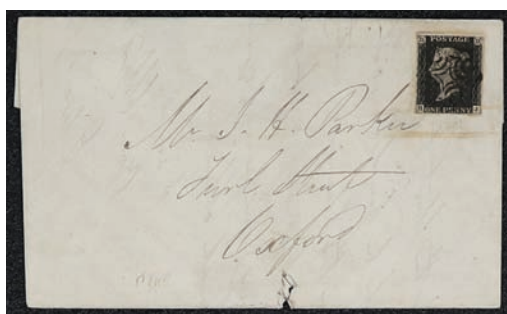 POSTAGE
ONE PENNY
Mr J. H. Parker
Turl Street
Oxford